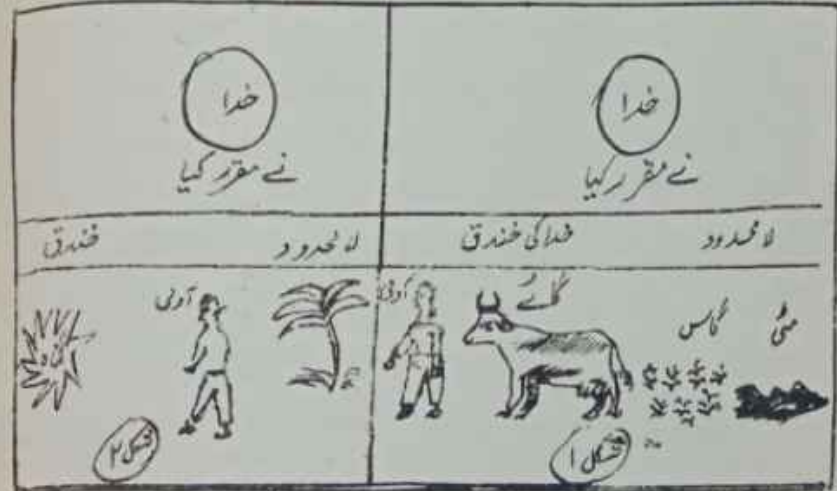 خدا
نے مقرر کیا
لا محدود خدا کی خندق
مٹی گھاس گائے آدمی
شکل ۱
خدا
نے مقرر کیا
لا محدود خندق
آدمی گناہ
شکل ۲